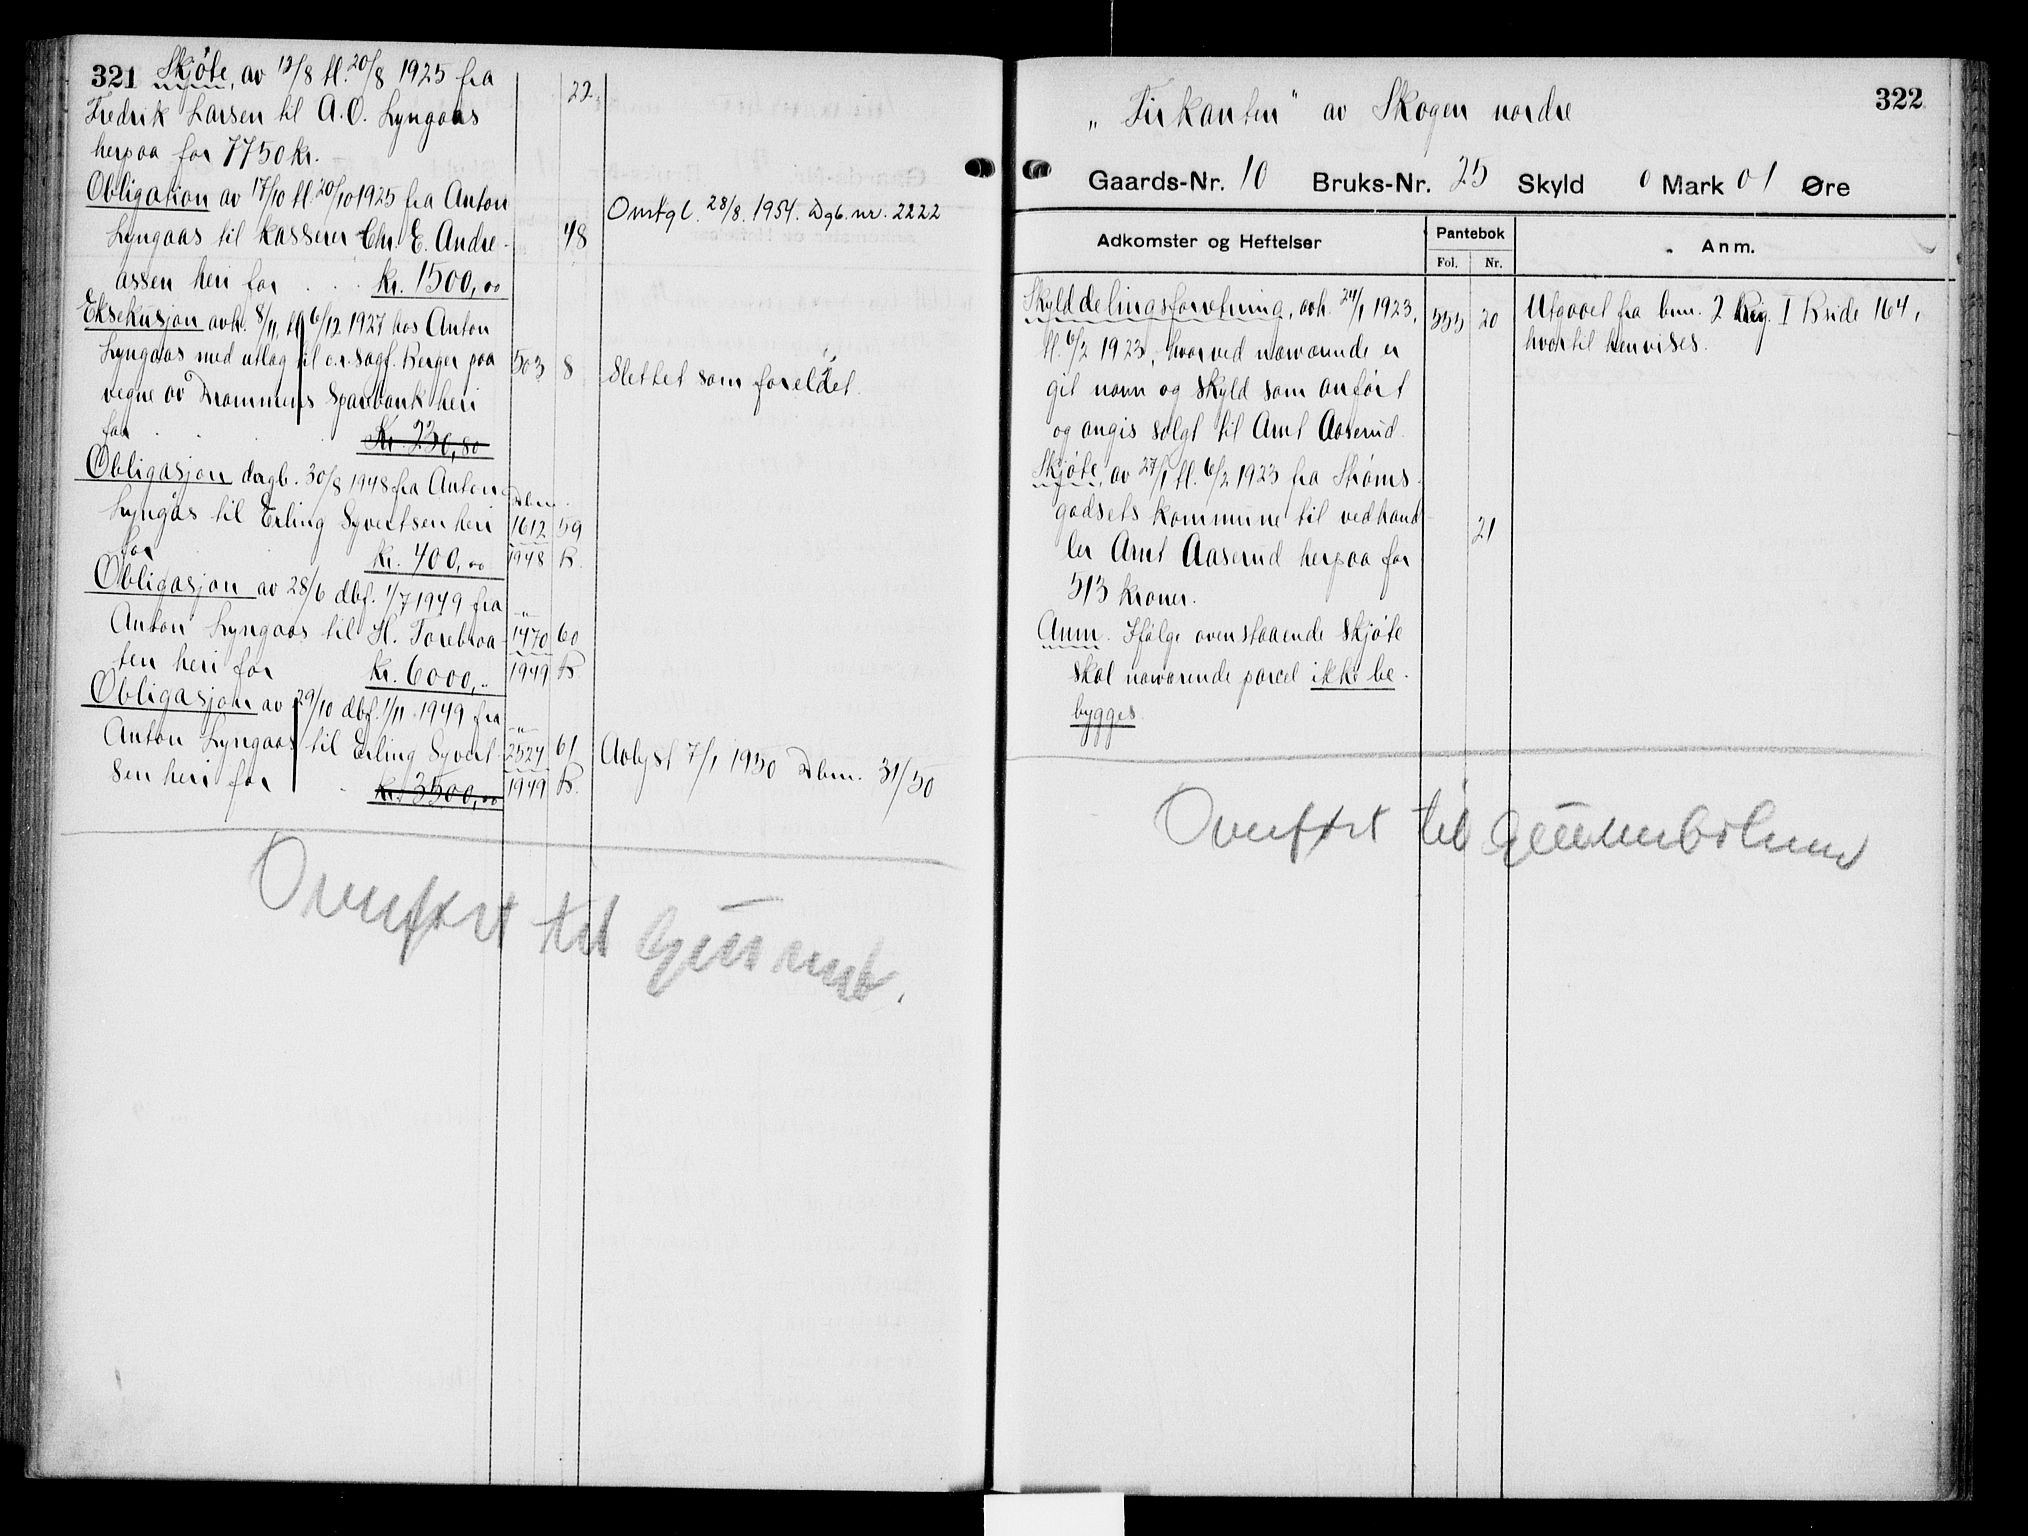 321 Skjøte, av 12/8 tl. 20/8 1925 fra
22.
Fredrik Larsen til A. O. Lyngaas
herpaa for 7750 kr.
Obligation av 17/10 tl. 20/10 1925 fra Anton
Lyngaas til kasserer Chr. E. Andre-
48
Omtgl. 28/8. 1954. Dgb. nr. 2222
assen heri for . . . kr. 1500,00
Eksekusjon avh. 8/11, tl 6/12 1927 hos Anton
Lyngaas med utlag til o.r.sagf. Berger paa
503 8
Slettet som foreldet.
vegne av Drammens Sparebank heri
for . . . Kr. 236,80
Obligasjon dagb. 30/8 1948 fra Anton
Dbnr.
Lyngås til Erling Syvertsen heri
1612 59
for . . kr. 400,00
1948 B.
Obligasjon av 28/6 dbf. 1/7 1949 fra
Anton Lyngaas til H. Torebraa-
-"-
1470 60
ten heri for kr. 6000,"
1949 B.
Obligasjon av 29/10 dbf. 1/11 1949 fra
-"-
Anton Lyngaas til Erling Syvert-
2524 61
Avlyst 7/1 1950 Dbnr. 31/50
sen heri for . kr. 3500,00
1949 B.
Overført til
322
„Firkanten" av Skogen nordre
Gaards-Nr. 10 Bruks-Nr. 25 Skyld 0 Mark 01 Øre
Adkomster og Heftelser
Pantebok
Fol. Nr.
Anm.
Skylddelingsforretning, avh. 24/1 1923,
555 20
Utgaaet fra bnr. 2 Reg. I B side 164,
tl. 6/2 1923, hvorved nærværende er
hvortil henvises.
git navn og skyld som anført
og angis solgt til Arnt Aaserud.
Skjøte, av 27/1 tl. 6/2 1923 fra Strøms-
godsets kommune til vedhand-
21
ler Arnt Aaserud herpaa for
513 kroner.
Anm. Ifølge ovenstaaende skjøte
skal nærværende parcel ikke be-
bygges.
Overført til